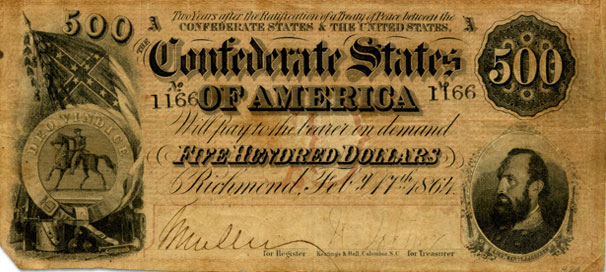 500
Two Years after the Ratification of a Treaty of Peace between the
A CONFEDERATE STATES & THE UNITED STATES, A
THE
Confederate States
500
No 1166 No 1166
OF AMERICA
DEO VINDICE
Will pay to the bearer on demand
FIVE HUNDRED DOLLARS
Richmond, Feby 17th 1864
for Register Keatinge & Ball, Columbia, S.C. for Treasurer